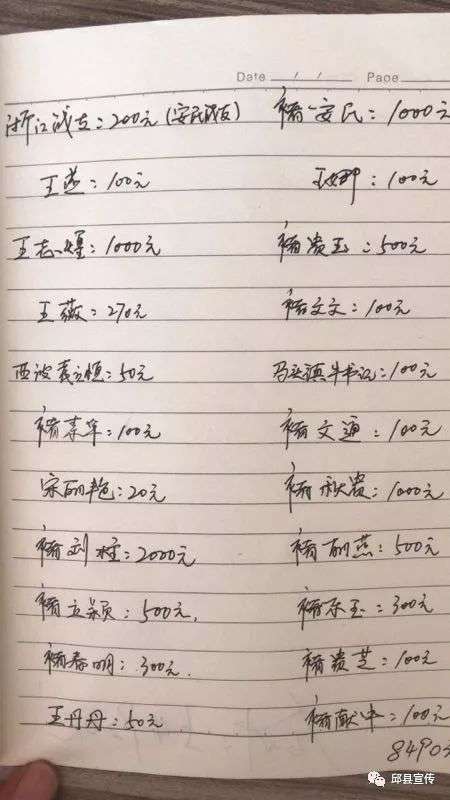 Date / / Page
浙江战友：200元（安民战友） 褚安民：1000元
王燕：100元 王娜：100元
王志耀：1000元 褚贵玉：500元
王薇：270元 褚文文：100元
西波袁立恒：50元 马头镇牛书记：100元
褚春华：100元 褚文通：100元
宋丽艳：20元 褚秋贵：1000元
褚刘柱：2000元 褚丽燕：500元
褚立颖：500元. 褚乐玉：300元
褚春明：300元. 褚贵芝：100元
王丹丹：50元 褚献中：100元
8490元
邱县宣传